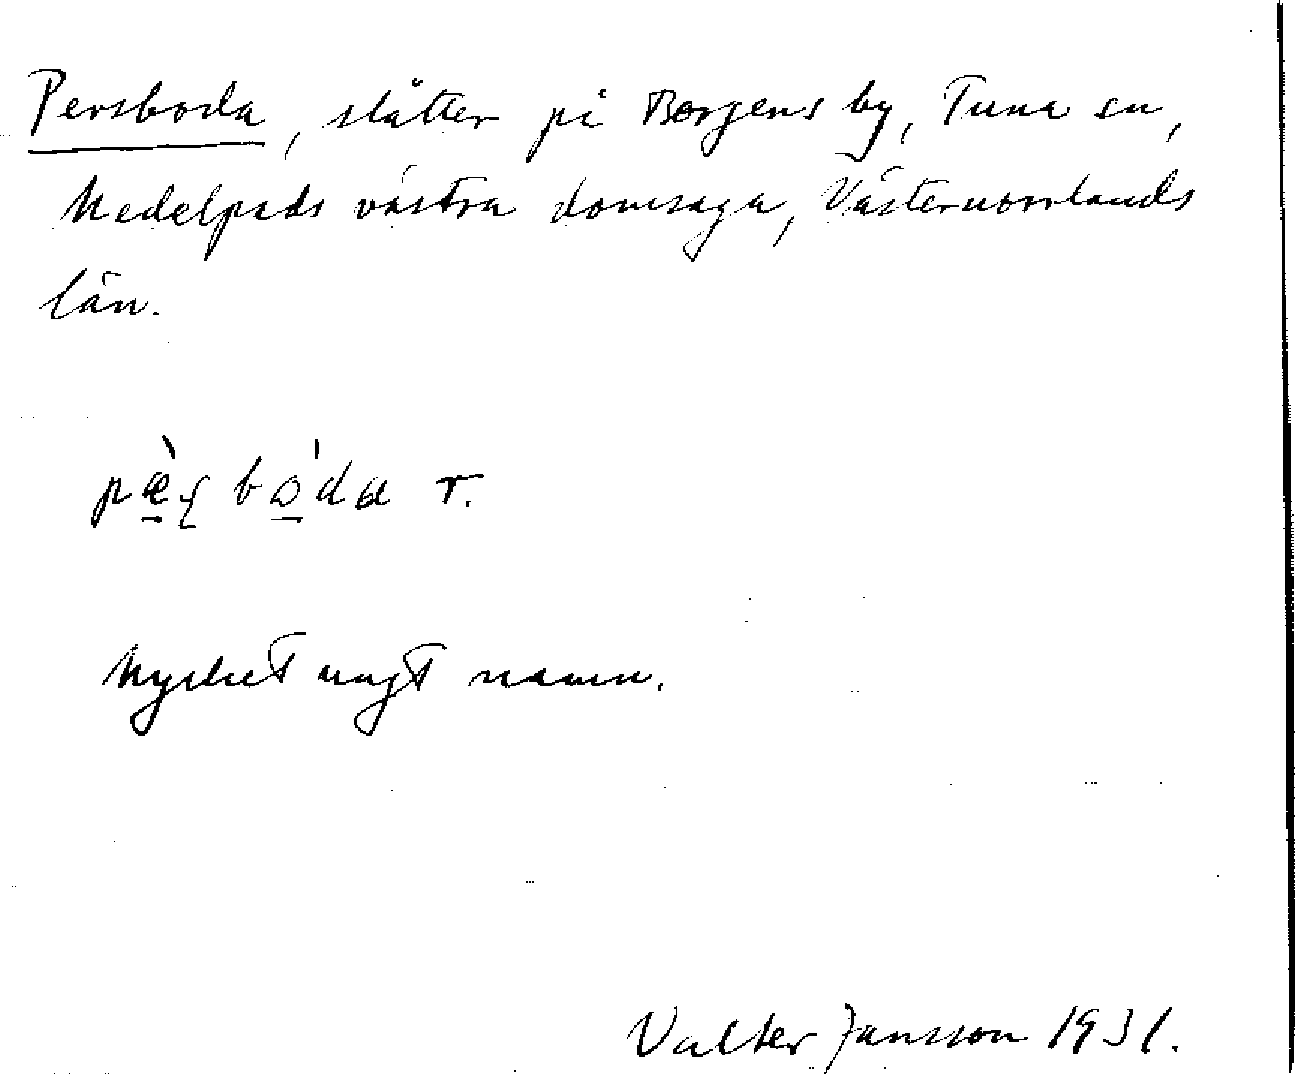 Persboda, slåtter på Borgens by, Tuna sn,
Medelpads västra domsaga, Västernorrlands
län.
bo̲'da r.
Mycket ungt namn.
Valter Jansson 1931.